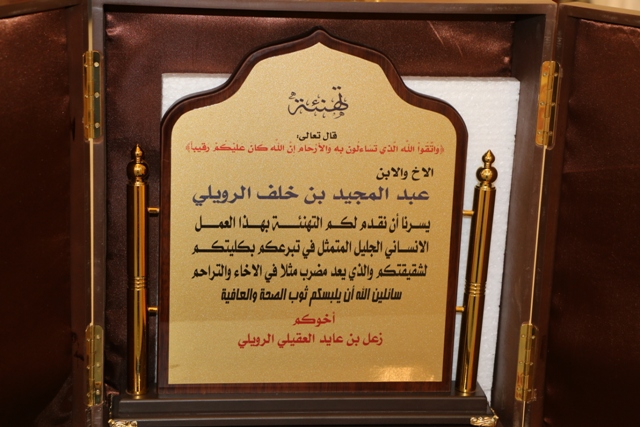 تهنئة
قال تعالى:
﴿وَاتَّقُواْ اللَّهَ الَّذِي تَسَاءلُونَ بِهِ وَالأَرْحَامَ إِنَّ اللَّهَ كَانَ عَلَيْكُمْ رَقِيباً﴾
الاخ والابن
عبد المجيد بن خلف الرويلي
يسرنا أن نقدم لكم التهنئة بهذا العمل
الانساني الجليل المتمثل في تبرعكم بكليتكم
لشقيقتكم والذي يعد مضرب مثلا في الاخاء والتراحم
سائلين الله أن يلبسكم ثوب الصحة والعافية
أخوكم
زعل بن عايد العقيلي الرويلي